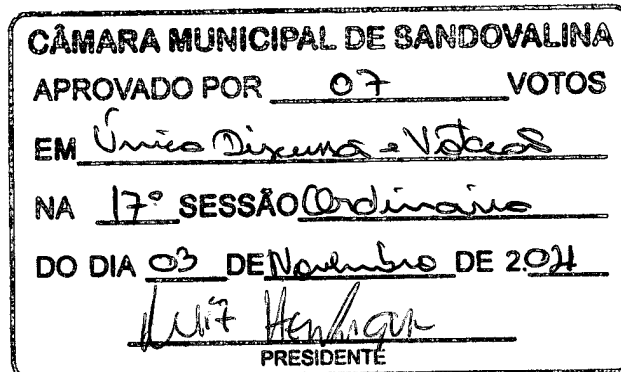 CÂMARA MUNICIPAL DE SANDOVALINA
APROVADO POR 07 VOTOS
EM Única Discussão e Votação
NA 17ª SESSÃO Ordinária
DO DIA 03 DE Novembro DE 2.021
Luiz Henrique
PRESIDENTE